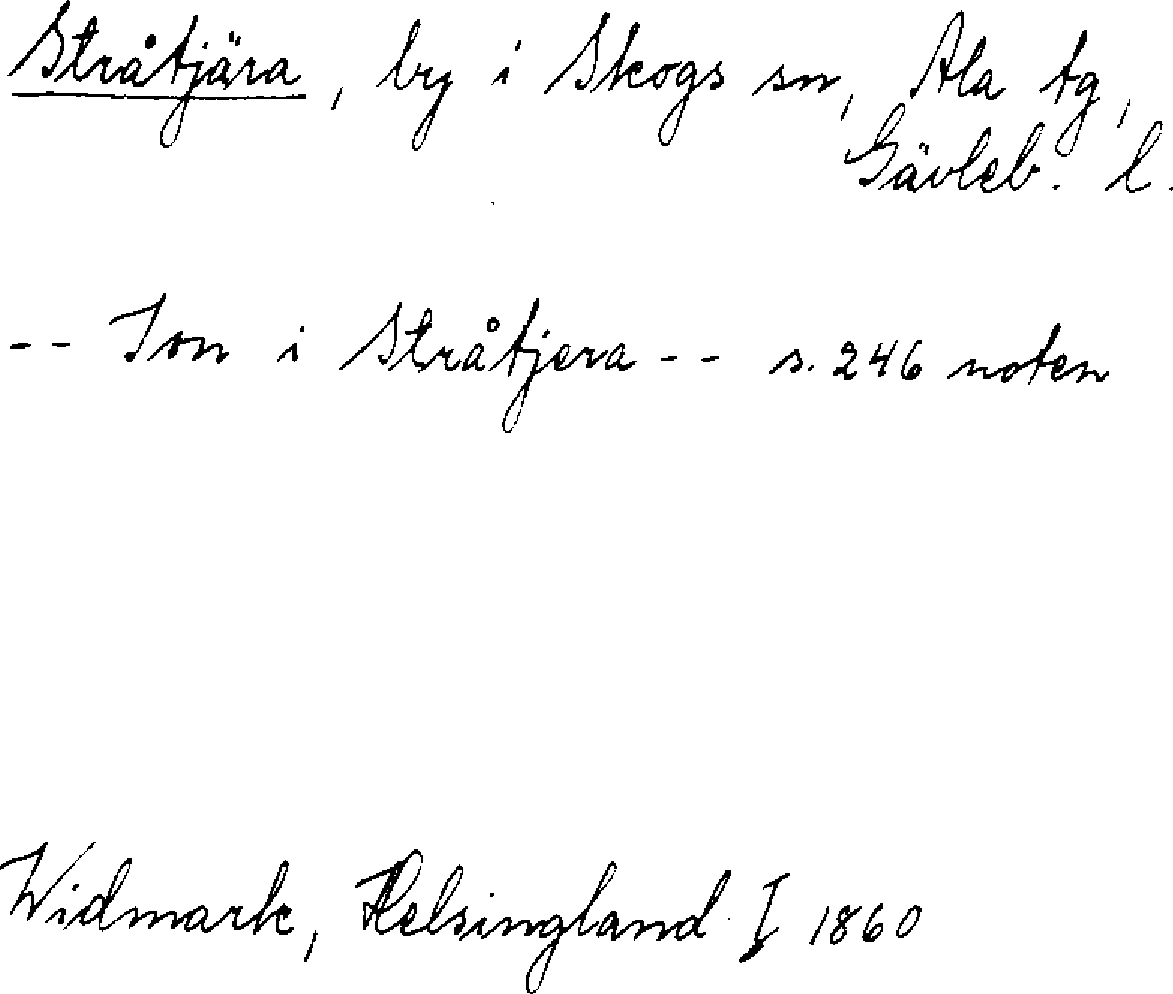 Stråtjära, by i Skogs sn, Ala tg,
Gävleb. l.
-- Jon i Stråtjera -- s. 246 noten
Widmark, Helsingland I 1860